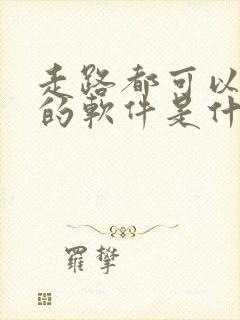 走路都可以
的軟件是什
羅攀